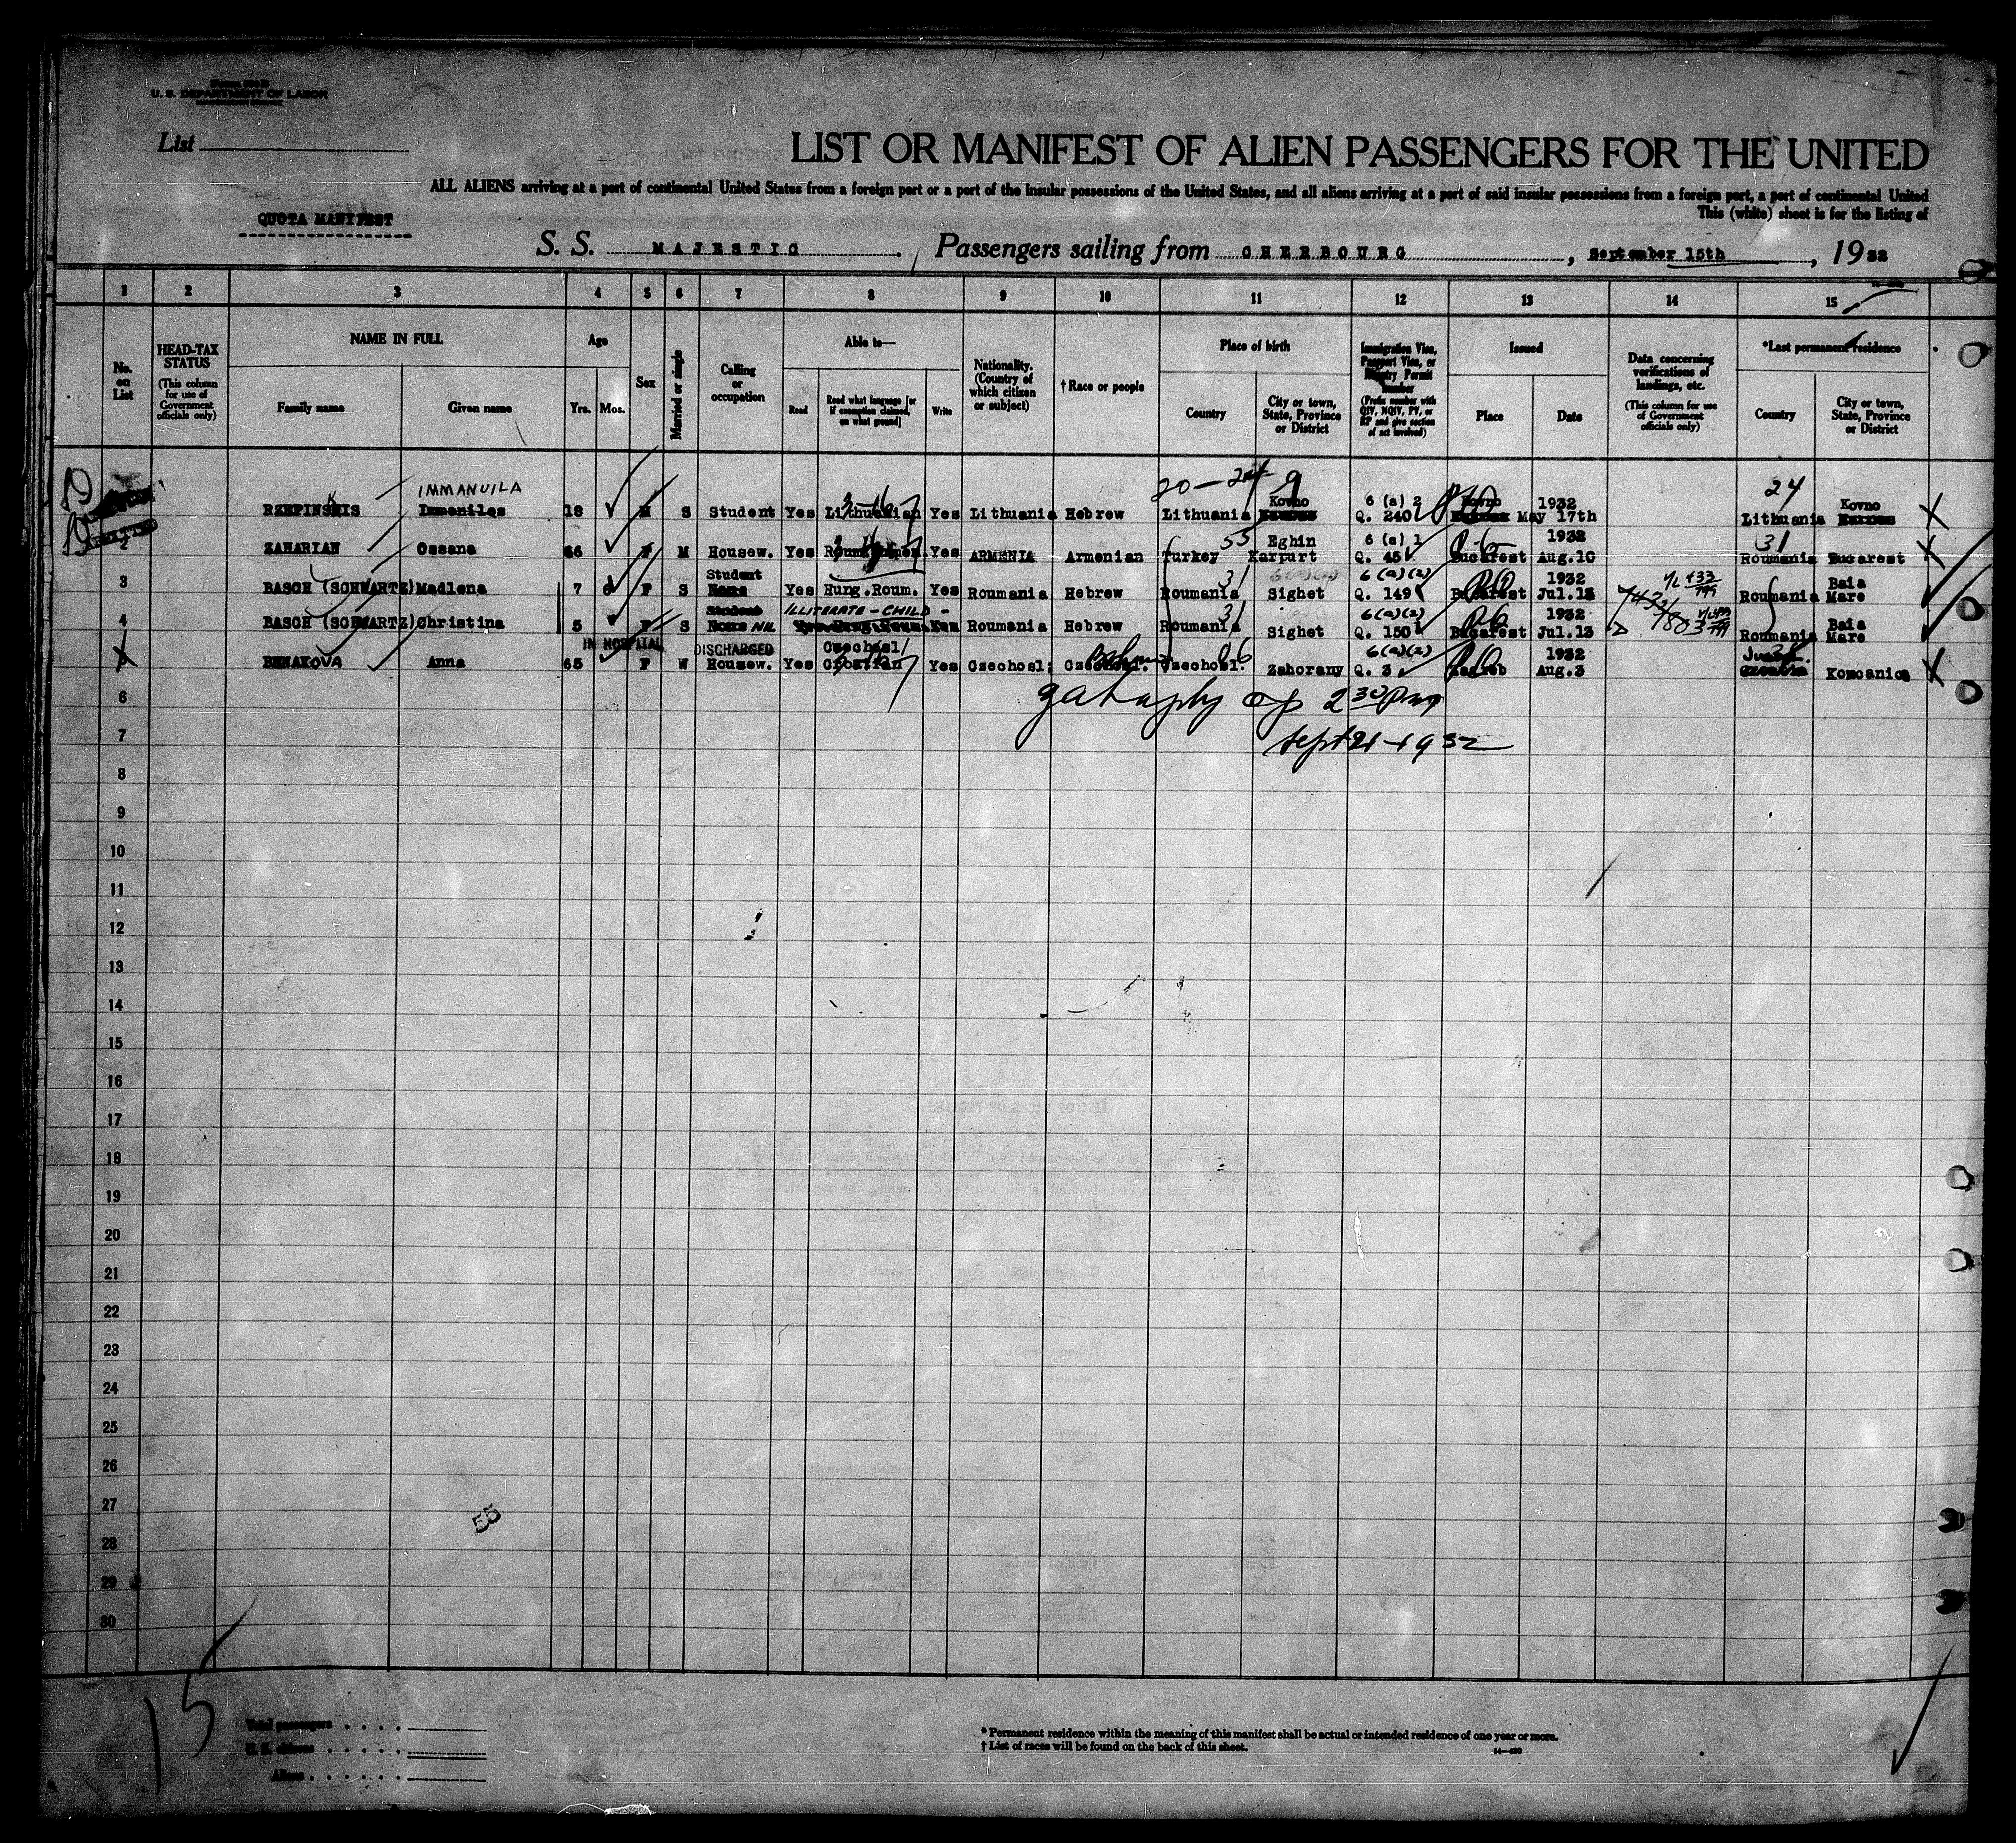 U. S. DEPARTMENT OF LABOR
List
LIST OR MANIFEST OF ALIEN PASSENGERS FOR THE UNITED
ALL ALIENS arriving at a port of continental United States from a foreign port or a port of the insular possessions of the United States, and all aliens arriving at a port of said insular possessions from a foreign port, a port of continental United
This (white) sheet is for the listing of
QUOTA MANIFEST
S. S. MAJESTIC, Passengers sailing from CHERBOURG, September 15th, 1932
1 2 3 4 5 6 7 8 9 10 11 12 13 14 15
No. on List
HEAD-TAX STATUS
(This column for use of Government officials only)
NAME IN FULL
Family name Given name
Age
Yrs. Mos.
Sex
Married or single
Calling or occupation
Able to—
Read Read what language [or if exemption claimed, on what ground] Write
Nationality. (Country of which citizen or subject)
†Race or people
Place of birth
Country City or town, State, Province or District
Immigration Visa, Passport Visa, or Reentry Permit number
(Prefix number with QIV, NQIV, PV, or RP and give section of act involved)
Issued
Place Date
Data concerning verifications of landings, etc.
(This column for use of Government officials only)
*Last permanent residence
Country City or town, State, Province or District
IMMANUILA 20 — 24 24
Kovno 6 (a) 2 Kovno 1932 Kovno
RZEPINSKIS 18 M S Student Yes Lithuanian Yes Lithuania Hebrew Lithuania Q. 240 May 17th Lithuania
55 Eghin 6 (a) 1 1932 31
2 ZAHARIAN Ossana 66 F M Housew. Yes Yes ARMENIA Armenian Turkey Karpurt Q. 45 Bucarest Aug.10 Roumania Bucarest
Student 31 6(a)(2) 1932 Baia
3 BASCH (SCHWARTZ) Madlena 7 6 F S None Yes Hung.Roum. Yes Roumania Hebrew Roumania Sighet Q. 149 Bucarest Jul.13 Roumania Mare
Student ILLITERATE - CHILD - 31 6(a)(2) 1932 Baia
4 BASCH (SCHWARTZ) Christina 5 F S None NIL Roumania Hebrew Roumania Sighet Q. 150 Bucarest Jul.13 Roumania Mare
IN HOSPITAL DISCHARGED Czechosl/ 6(a)(2) 1932
5 BENAKOVA Anna 65 F W Housew. Yes Croatian Yes Czechosl. Czechosl. Czechosl. Zahorany Q. 3 Zagreb Aug.3 Komoanica
2 30 pm
Sept 21-1932
6
7
8
9
10
11
12
13
14
15
16
17
18
19
20
21
22
23
24
25
26
27
28
29
30
55
15
Total passengers
U. S. citizens
Aliens
* Permanent residence within the meaning of this manifest shall be actual or intended residence of one year or more.
† List of races will be found on the back of this sheet.
14—430